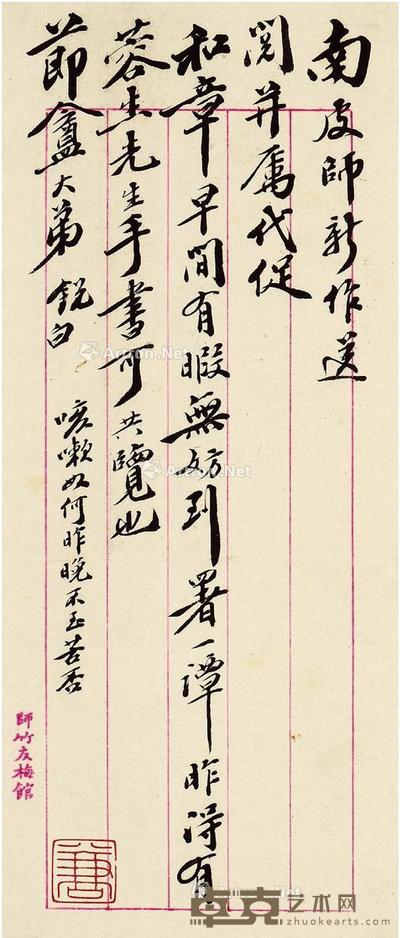 南皮師新作送
閱并屬代促
和章早間有暇無妨到署一譚昨得有
蓉生先生手書可共覽也
節盦大弟 銳白
咳嗽如何昨晚不至苦否
師竹友梅館
Artron.Net
Artron.Net
Artron.Net
卓克艺术网
www.zhuokearts.com